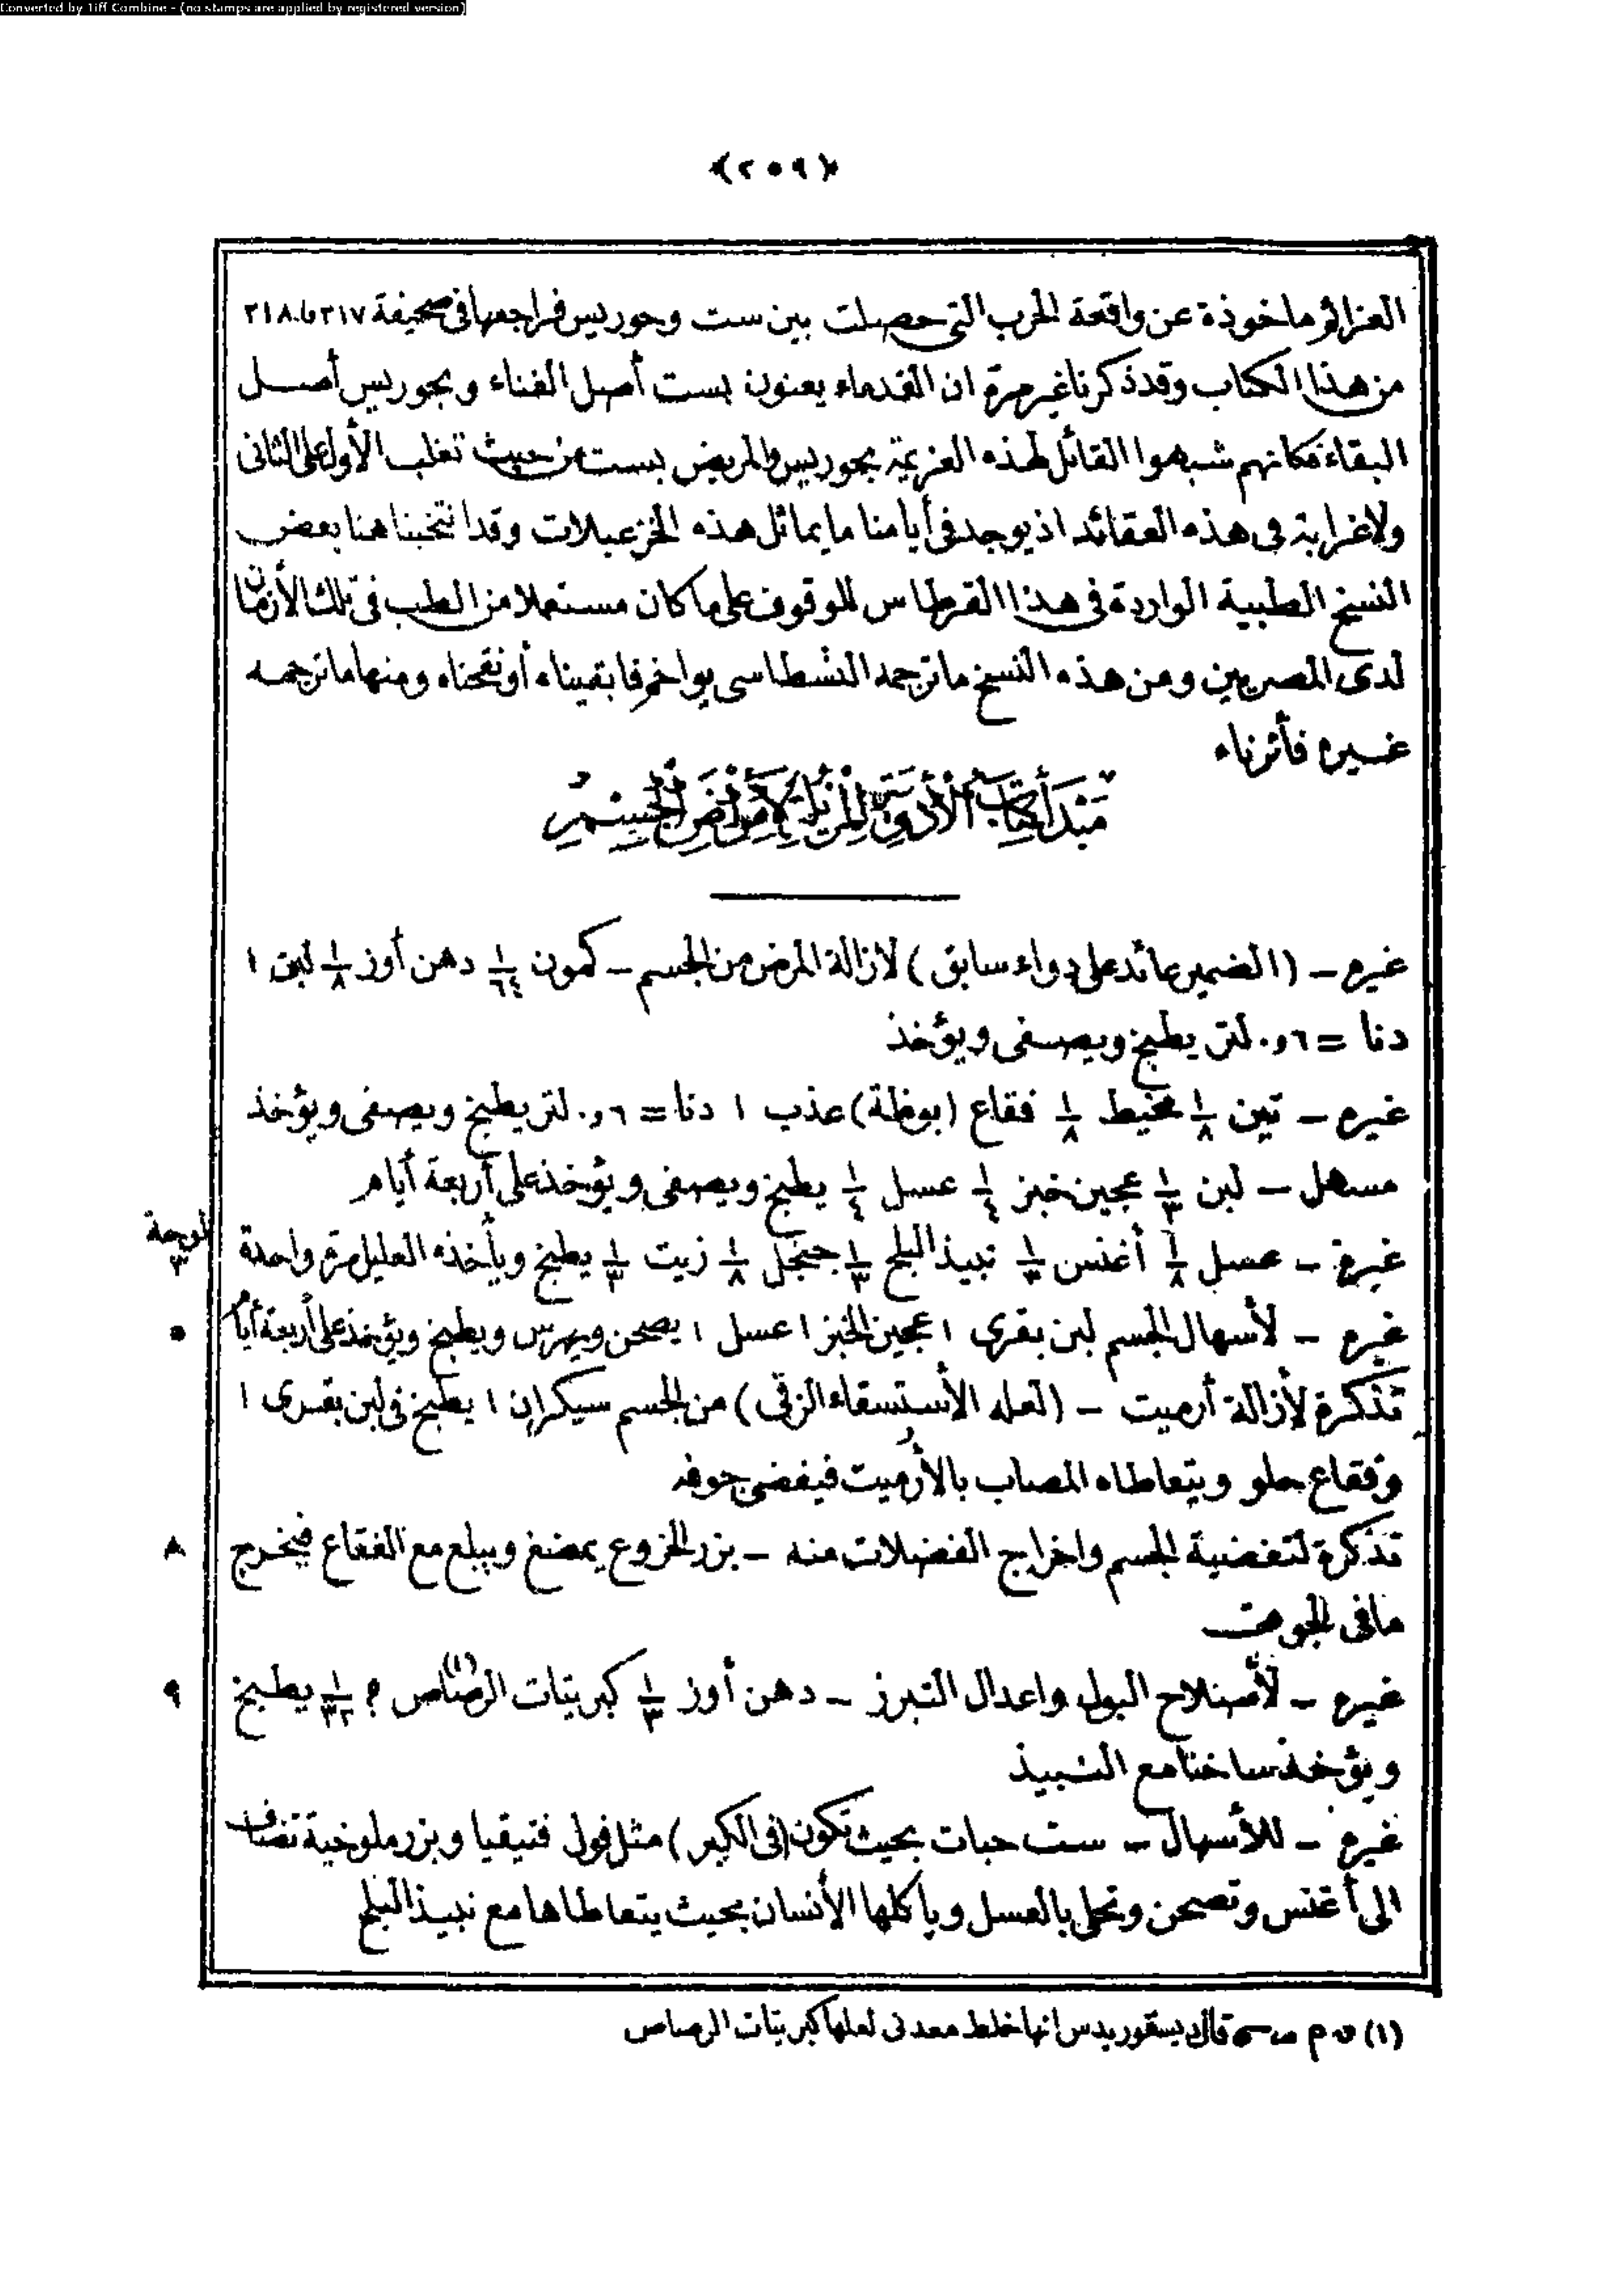 Converted by Tiff Combine - (no stamps are applied by registered version)
﴿٢٥٩﴾
العزائم ماخوذة عن واقعة الحرب التى حصلت بين ست وحوريس فراجعها فى صحيفة ٢١٧ و ٢١٨
من هذا الكتاب وقد ذكرنا غير مرة ان القدماء يعنون بست أصل الفناء وبحوريس أصل
البقاء فكانهم شبهوا القائل لهذه العزيمة بحوريس والمريض بست من حيث تغلب الأول على الثانى
ولاغرابة فى هذه العقائد اذ يوجد فى أيامنا ما يماثل هذه الخزعبلات وقد انتخبنا هنا بعض
النسخ الطبية الواردة فى هذا القرطاس للوقوف على ما كان مستعملا من الطب فى تلك الأزمان
لدى المصريين ومن هذه النسخ ما ترجمه النطاسى يواخم فابقيناه أو نقحناه ومنها ما ترجمه
غيره فأثرناه
مبتدأ كتاب الأدوية المزيلة لأمراض الجسم
غيره – (الضمير عائد على دواء سابق) لازالة المرض من الجسم – كمون ١/٦٤ دهن أوز ١/٨ لبن ١
دنا = ٦و٠ لتر يطبخ ويصفى ويؤخذ
غيره – تين ١/٨ مخيط ١/٨ فقاع (بوظة) عذب ١ دنا = ٦و٠ لتر يطبخ ويصفى ويؤخذ
مسهل – لبن ١/٣ عجين خبز ١/٤ عسل ١/٤ يطبخ ويصفى ويؤخذ على أربعة أيام
لوحة ٣
غيره – عسل ١/٨ أغنس ١/٣ نبيذ البلح ١/٣ جنجل ١/٨ زيت ١/٣ يطبخ ويأخذه العليل مرة واحدة
٥ غيره – لأسهال الجسم لبن بقرى ١ عجين الخبز ١ عسل ١ يصحن ويهرس ويطبخ ويؤخذ على أربعة أيام
تذكرة لأزالة أرميت – (لعله الأستسقاء الزقى) من الجسم سيكران ١ يطبخ فى لبن بقرى ١
وفقاع حلو ويتعاطاه المصاب بالأرميت فيفضى جوفه
٨ تذكرة لتفضية الجسم واخراج الفضلات منه – بزر الخروع يمضغ ويبلع مع الفقاع فيخرج
مافى الجوف
٩ غيره – لأصلاح البول واعدال التبرز – دهن أوز ١/٣ كبريتات الرصاص (١) ؟ ١/٣٢ يطبخ
ويؤخذ ساخنا مع النبيذ
غيره – للأسهال – ست حبات بحيث تكون (فى الكبر) مثل فول فنيقيا وبزر ملوخية تضاف
الى أغنس وتصحن وتحلى بالعسل وياكلها الأنسان بحيث يتعاطاها مع نبيذ البلح
(١) قال ديسقوريدس انها خلط معدنى لعلها كبريتات الرصاص